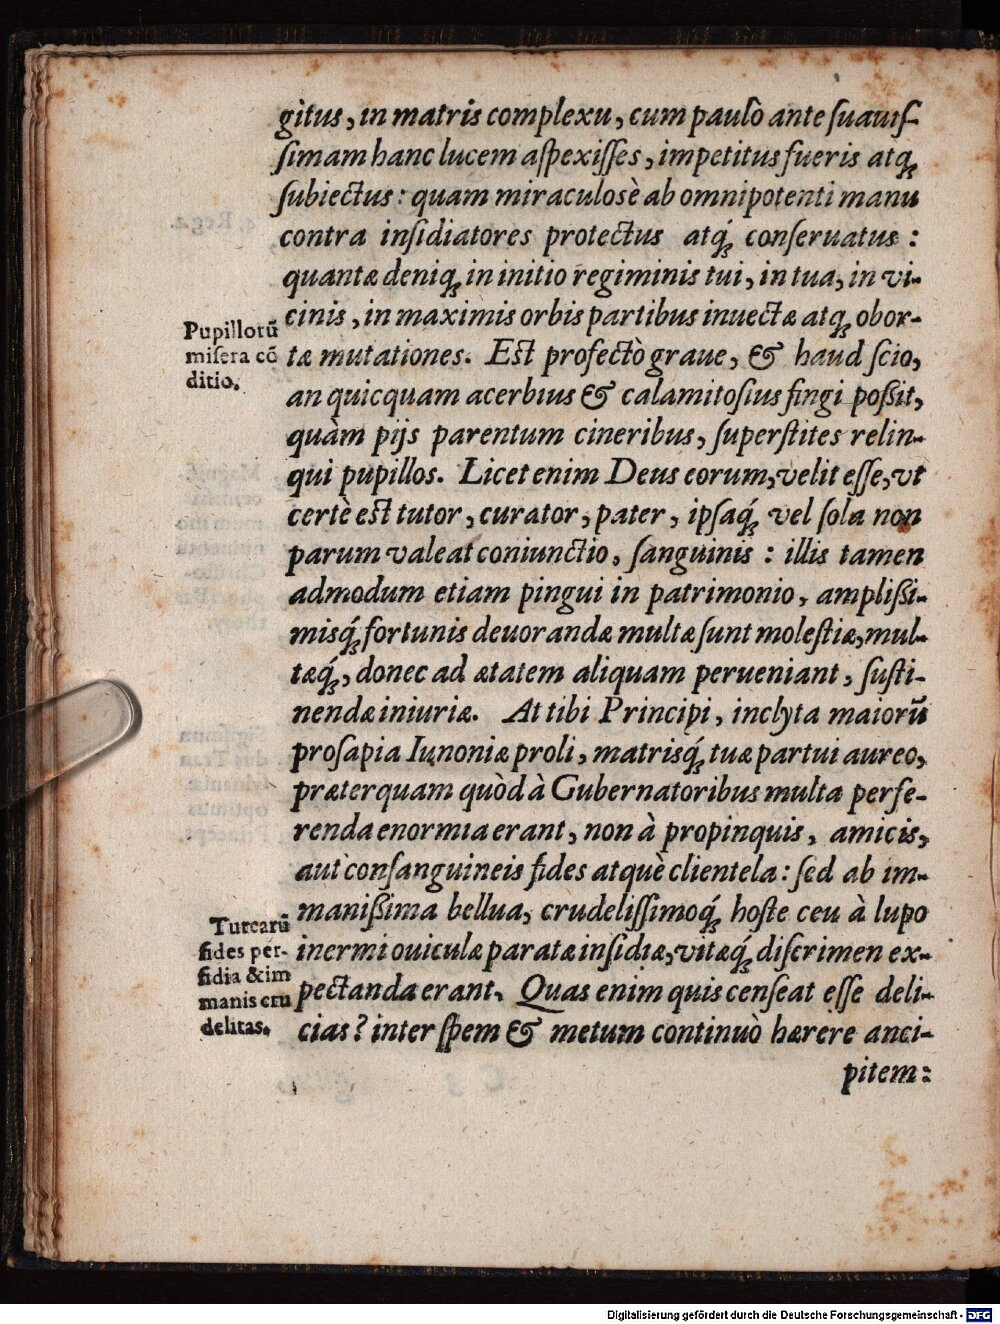 gitus, in matris complexu, cum paulò ante ſuauiſ-
ſimam hanc lucem aſpexiſſes, impetitus fueris atq́;
ſubiectus: quam miraculosè ab omnipotenti manu
contra inſidiatores protectus atq́; conſeruatus:
quantæ deniq́; in initio regiminis tui, in tua, in vi-
cinis, in maximis orbis partibus inuectæ atq́; obor-
Pupillorũ
miſera cõ
ditio.
tæ mutationes. Eſt profectò graue, & haud ſcio,
an quicquam acerbius & calamitoſius fingi poßit,
quàm pijs parentum cineribus, ſuperſtites relin-
qui pupillos. Licet enim Deus eorum, velit eſſe, vt
certè eſt tutor, curator, pater, ipſaq́; vel ſola non
parum valeat coniunctio, ſanguinis: illis tamen
admodum etiam pingui in patrimonio, amplißi-
misq́; fortunis deuorandæ multæ ſunt moleſtiæ, mul-
tæq́;, donec ad ætatem aliquam perueniant, ſuſti-
nendæ iniuriæ. At tibi Principi, inclyta maiorũ
proſapia Iunoniæ proli, matrisq́; tuæ partui aureo,
præterquam quòd à Gubernatoribus multa perfe-
renda enormia erant, non à propinquis, amicis,
aut conſanguineis fides atquè clientela: ſed ab im-
manißima bellua, crudeliſſimoq́; hoſte ceu à lupo
Turcarũ
fides per-
fidia & im
manis cru
delitas.
inermi ouiculæ paratæ inſidiæ, vitæq́; diſcrimen ex-
pectanda erant. Quas enim quis cenſeat eſſe deli-
cias? inter ſpem & metum continuò hærere anci-
pitem:
Digitalisierung gefördert durch die Deutsche Forschungsgemeinschaft - DFG